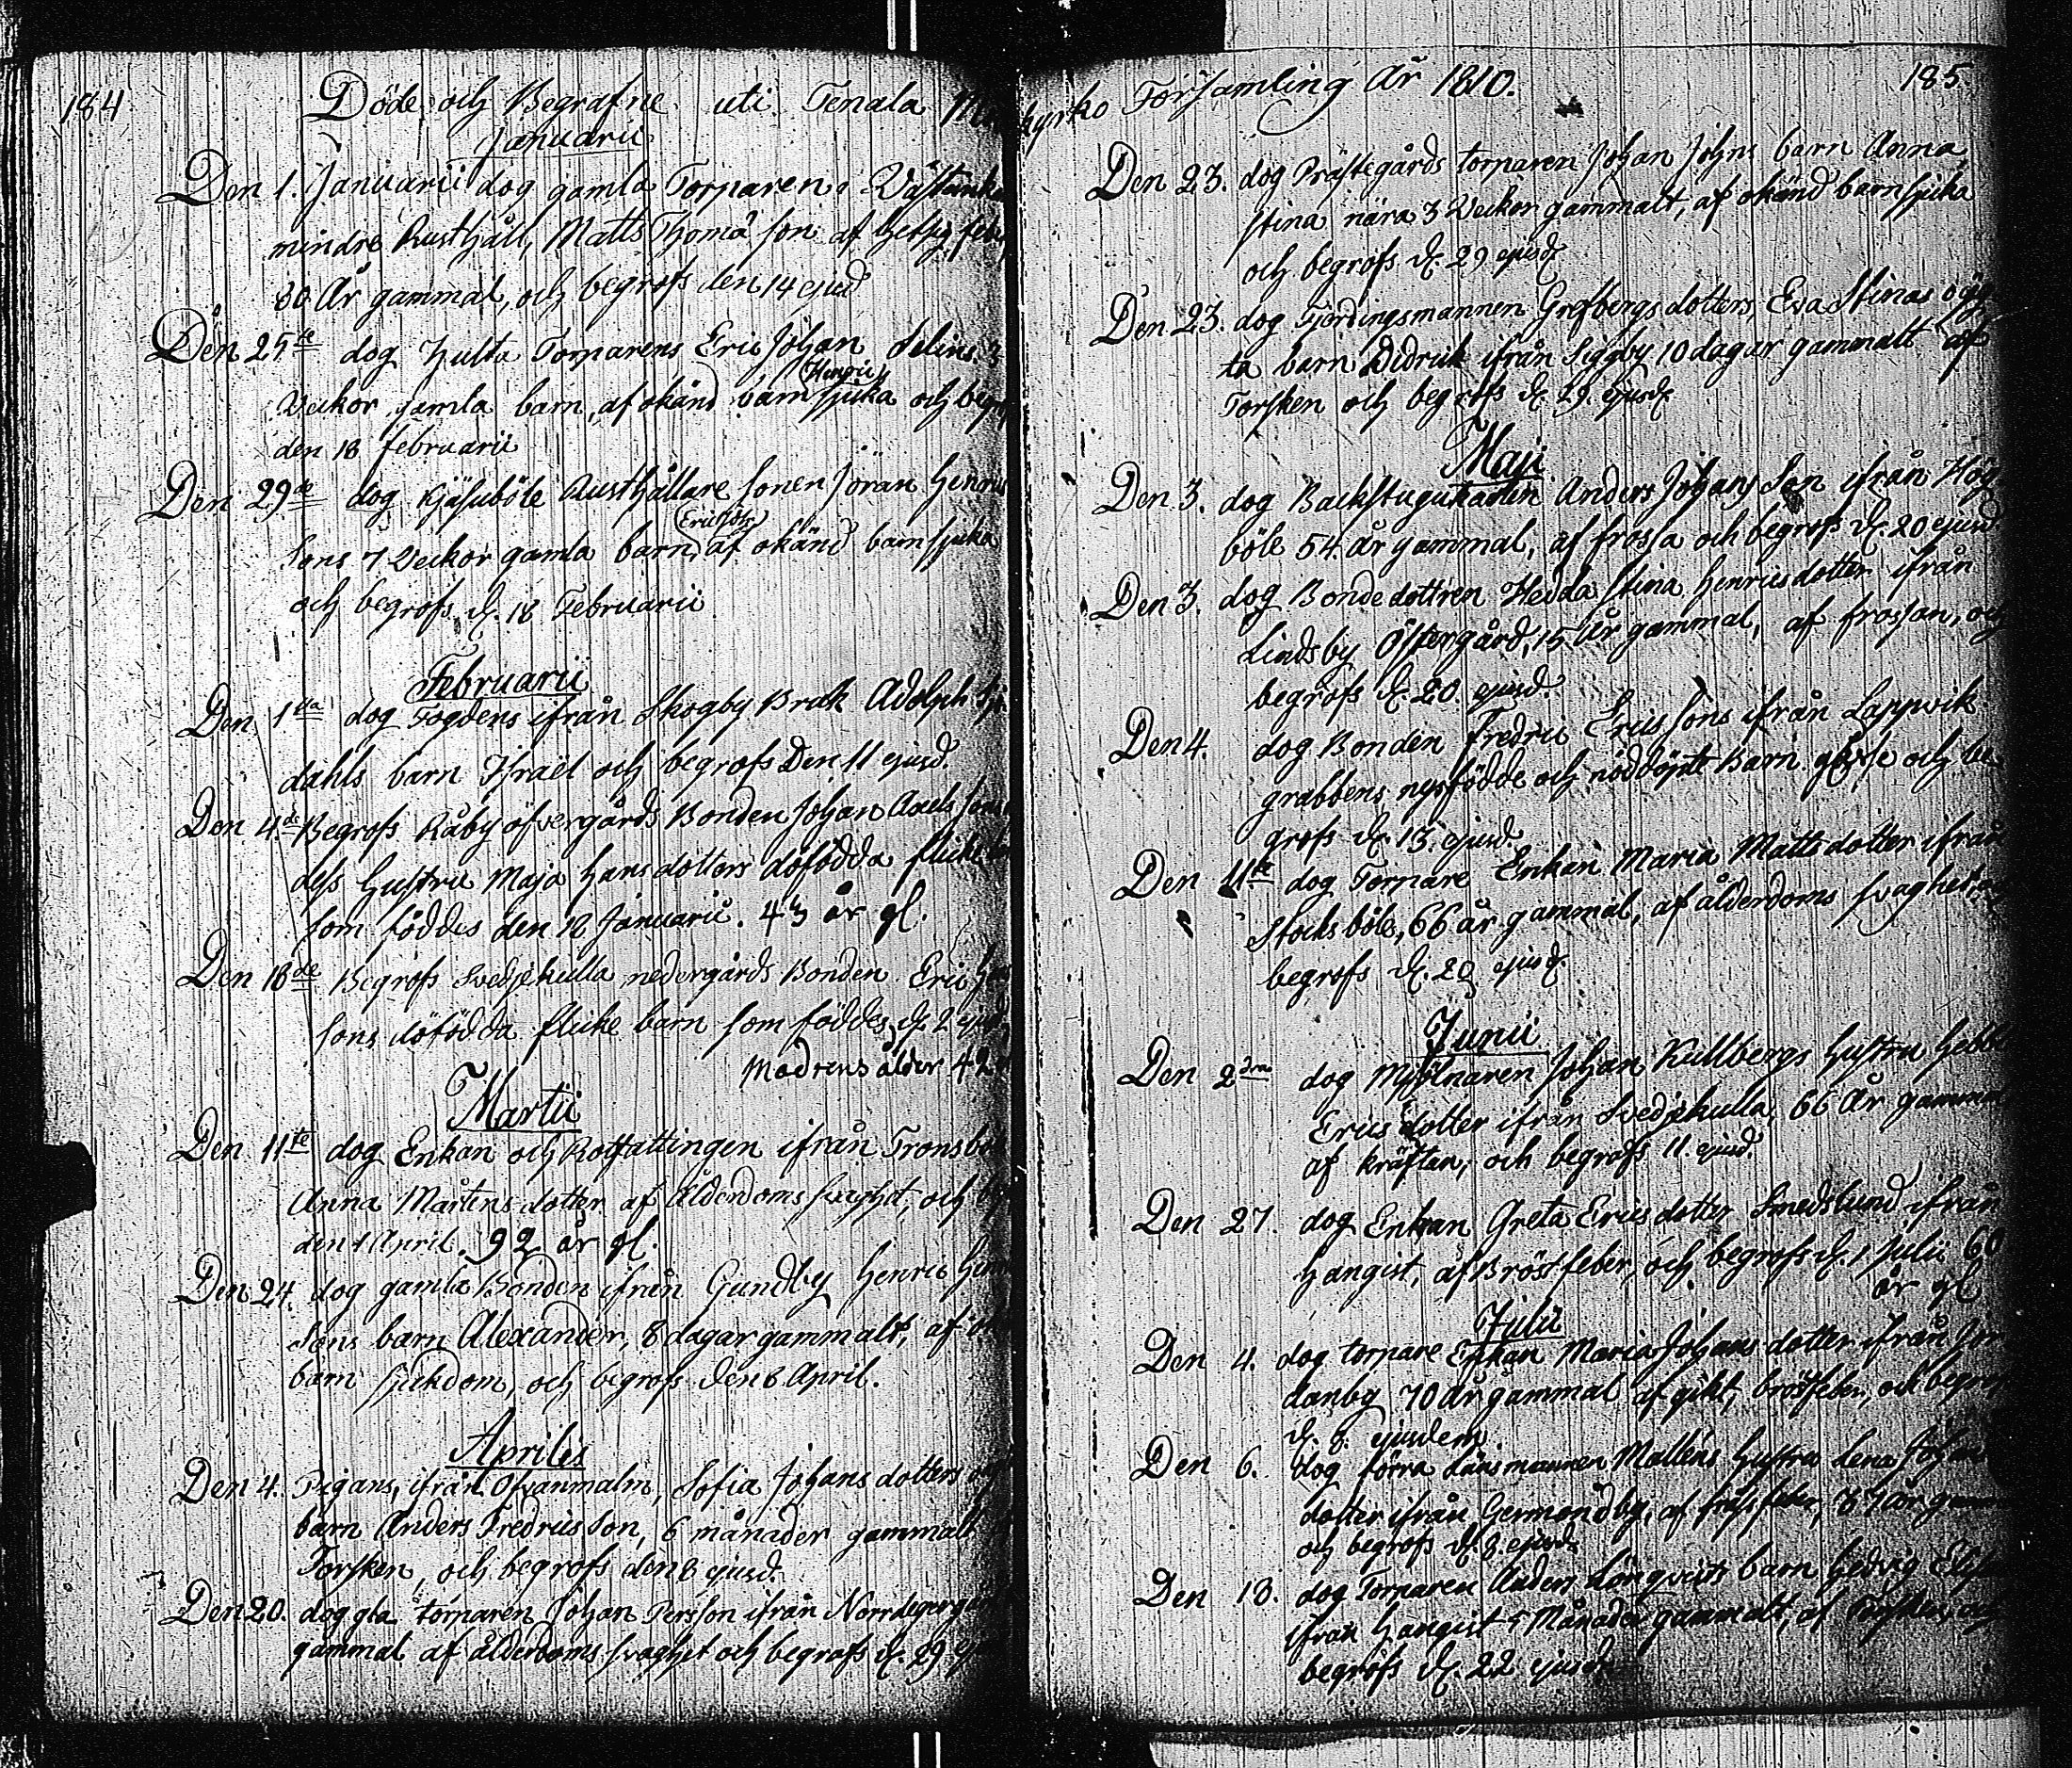 184
Döde och Begrafne uti Tenala
Januarii
Den 1. Januarii dog gamla Torparen
mindre Rusthåll, Matts Thomæ son af
80 År gammal, och begrofs den 14 ejusd
Den 25te dog Hulta Torparens Eric Johan
Henric
Veckor gamla barn, af okänd barnsjuka och
den 18 Februarii
Den 29de dog Rusthållare Sonen Jöran
Eric Joh:
Sons 7 Veckor gamla barn, af okänd barnsjuka
och begrofs d. 18 Februarii
Februarii
Den 1sta dog Fogdens ifrån Skogby Bruk Adolph
dahls barn Israël och begrofs Den 11 ejusd.
Den 4de Begrofs Råby öfvergårds Bonden Johan Axels
dess Hustru Maja Hansdotters döfödda flicke
som föddes den 12 Januarii. 43 år gl.
Den 18de Begrofs Svedjekulla nedergårds Bonden Eric
sons döfödda flicke barn som föddes d. 2
Modrens ålder 42
Martii
Den 11te dog Enkan och Rotfattingen ifrån
Anna Mårtens dotter af Ålderdoms svaghet, och
den 1 April. 92 år gl.
Den 24. dog gamla Bonden ifrån Gundby Henric
Sons barn Alexander, 8 dagar gammalt, af
barn sjukdom, och begrofs den 8 April.
Aprilis
Den 4. Pigans, ifrån Ofvanmalm, Sofia Johans dotters
barn Anders Fredrics son, 6 månader gammalt
Torsken, och begrofs den 8 ejusd.
Den 20. dog gla torparen Johan Persson ifrån
gammal af ålderdoms svaghet och begrofs d. 29
kyrko Församling År 1810.
185
Den 23. dog Prästegårds torparen Johan Johns barn Anna
Stina nära 3 Veckor gammalt, af okänd barnsjuka
och begrofs d. 29 ejusd
Den 23. dog Fjerdingsmannen Grefbergs dotters, Eva Stinas
ta barn Didrik ifrån Siggby 10 dagar gammalt af
Torsken och begrofs d. 29. ejusd
Maji
Den 3. dog Anders Johans Son ifrån Hög
böle 54. År gammal, af frossa och begrofs d. 20 ejusd
Den 3. dog Bondedottren Hedda Stina Henricsdotter ifrån
Lindsby Östergård, 15 År gammal, af frossan, och
begrofs d. 20. ejusd.
Den 4. dog Bonden Fredric Erics sons ifrån Lappvik
grabbens nyfödde och nöddöpte Barn och be
grofs d. 13. ejusd.
Den 11te dog Torpare Enkan Maria Mattsdotter ifrån
Stocksböle, 66 år gammal, af ålderdoms svaghet,
begrofs d. 20 ejusd.
Junii
Den 2dra dog Mjölnaren Johan Kullbergs Hustru
Erics dotter ifrån Svedjekulla, 66 År
af kräftan, och begrofs 11. ejusd.
Den 27. dog Enkan Greta Erics dotter Smedslund ifrån
Hangist, af Bröstfeber, och begrofs d. 1 Julii 60
år gl
Julii
Den 4. dog torpare Enkan Maria Johans dotter ifrån
danby 70 år gammal af gikt, bröstfeber, och
d. 8. ejusdem
Den 6. dog förra Länsmannen Mollens Hustru Lena Johans
dotter ifrån Germundby, af 37 år
och begrofs d. 8. ejusd.
Den 13. dog Torparen Anders Lönqvists barn Hedvig
ifrån Hangist 5 Månader gammalt, af Torsken,
begrofs d. 22 ejusd.